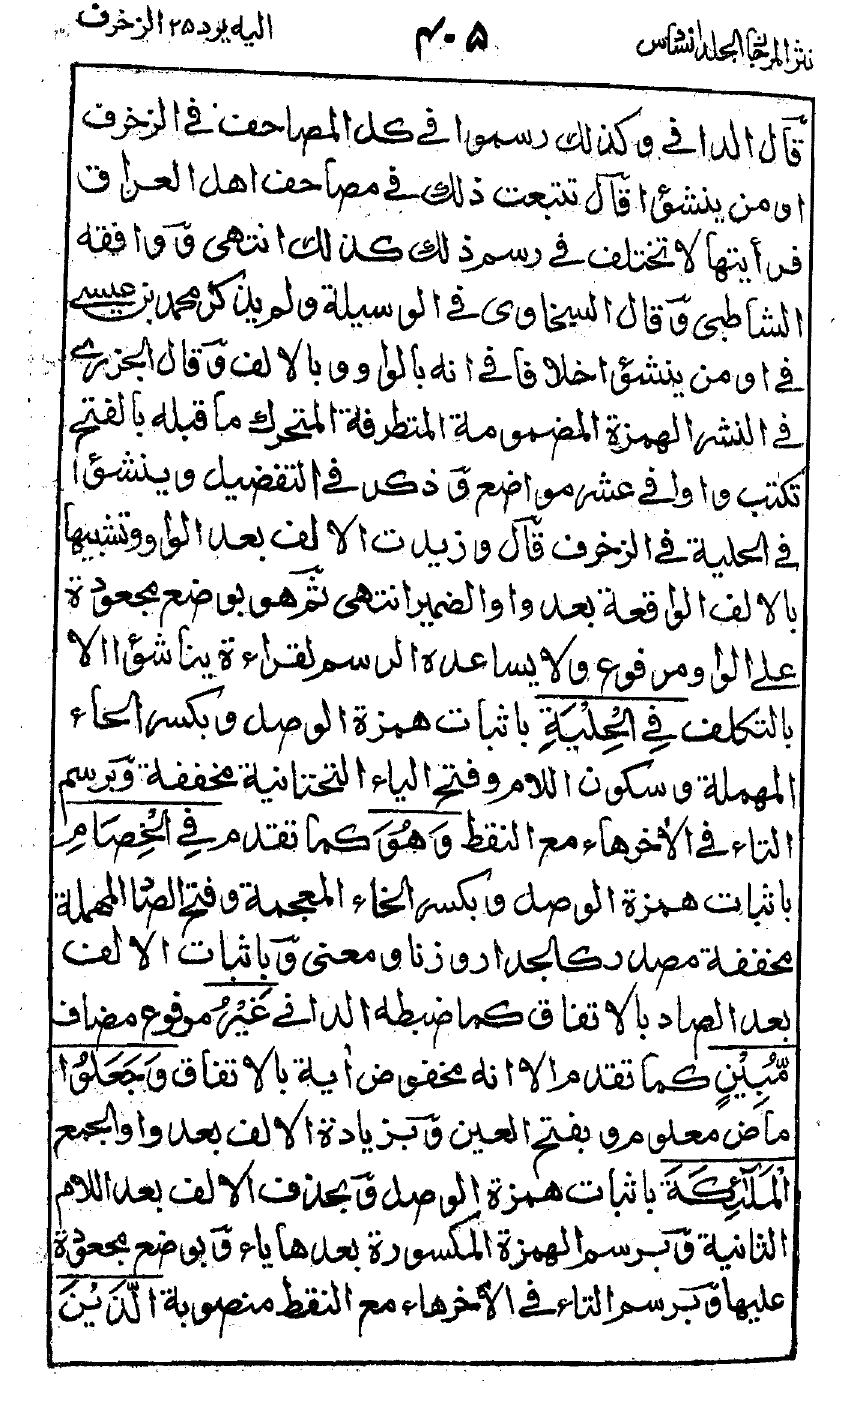 نثر المرجان المجلد السادس ۴۰۵ اليه يرد ۲۵ الزخرف
قال الداني وكذلك رسموا في كل المصاحف في الزخرف
او من ينشؤا قال تتبعت ذلك في مصاحف اهل العراق
فرأيتها لا تختلف في رسم ذلك كذلك انتهى ووافقه
الشاطبي وقال السخاوي في الوسيلة ولم يذكر محمد بن عيسى
في او من ينشؤا خلافا في انه بالواو وبالالف وقال الجزري
في النشر الهمزة المضمومة المتطرفة المتحرك ما قبله بالفتح
تكتب واوا في عشر مواضع وذكر في التفضيل وينشؤا
في الحلية في الزخرف قال وزيدت الالف بعد الواو وتشبيها
بالالف الواقعة بعد واو الضمير انتهى ثم هو بوضع مجعودة
على الواو ومرفوع ولا يساعده الرسم لقراءة يناشؤا الا
بالتكلف فِي الْحِلْيَةِ باثبات همزة الوصل وبكسر الحاء
المهملة وسكون اللام وفتح الياء التحتانية مخففة وبرسم
التاء في الآخر هاء مع النقط وَهُوَ كما تقدم فِي الْخِصَامِ
باثبات همزة الوصل وبكسر الخاء المعجمة وفتح الصاد المهملة
مخففة مصدر كالجدار وزنا ومعنى وباثبات الالف
بعد الصاد بالاتفاق كما ضبطه الداني غَيْرُ مرفوع مضاف
مُبِيْنٍ كما تقدم الا انه مخفوض أية بالاتفاق وَجَعَلُوا
ماض معلوم وبفتح العين وبزيادة الالف بعد واو الجمع
الْمَلٰٓئِكَةَ باثبات همزة الوصل وبحذف الالف بعد اللام
الثانية وبرسم الهمزة المكسورة بعدها ياء وبوضع مجعودة
عليها وبرسم التاء في الآخر هاء مع النقط منصوبة الَّذِيْنَ